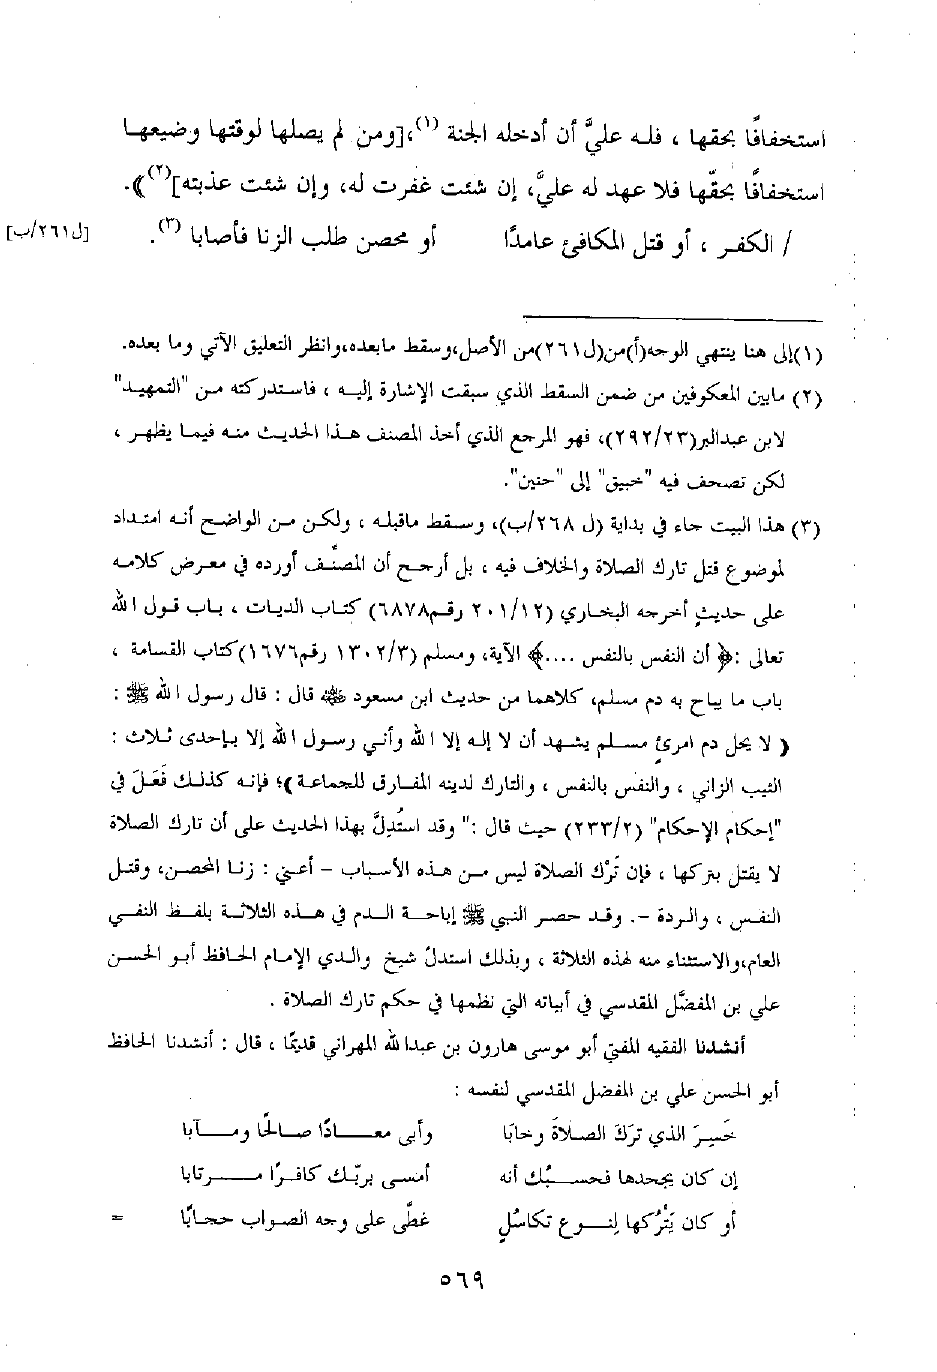 استخفافًا بحقها ، فله عليَّ أن أدخله الجنة (١)،[ومن لم يصلها لوقتها وضيعها
استخفافًا بحقّها فلا عهد له عليَّ، إن شئت غفرت له، وإن شئت عذبته](٢)﴾.
/ الكفر ، أو قتل المكافئ عامدًا أو محصن طلب الزنا فأصابا (٣). [ل٢٦١/ب]
(١)إلى هنا ينتهي الوجه(أ)من(ل٢٦١)من الأصل،وسقط مابعده،وانظر التعليق الآتي وما بعده.
(٢) مابين المعكوفين من ضمن السقط الذي سبقت الإشارة إليه ، فاستدركته مـن "التمهيـد"
لابن عبدالبر(٢٩٢/٢٣)، فهو المرجع الذي أخذ المصنف هـذا الحديث منه فيما يظهر ،
لكن تصحف فيه "خبيق" إلى "حنين".
(٣) هذا البيت جاء في بداية (ل ٢٦٨/ب)، وسقط ماقبله ، ولكن من الواضح أنـه امتـداد
لموضوع قتل تارك الصلاة والخلاف فيه ، بل أرجح أن المصنّف أورده في معرض كلامـه
على حديثٍ أخرجه البخاري (٢٠١/١٢ رقم٦٨٧٨) كتاب الديات ، باب قول الله
تعالى :﴿ أن النفس بالنفس ....﴾ الآية، ومسلم (١٣٠٢/٣ رقم١٦٧٦)كتاب القسامة ،
باب ما يباح به دم مسلم، كلاهما من حديث ابن مسعود ﷺ قال : قال رسول الله ﷺ :
( لا يحل دم امرئٍ مسلم يشهد أن لا إله إلا الله وأني رسول الله إلا بإحدى ثلاث :
الثيب الزاني ، والنفس بالنفس ، والتارك لدينه المفارق للجماعة )؛ فإنه كذلك فَعَلَ في
"إحكام الإحكام" (٢٣٣/٢) حيث قال :" وقد استُدِلَّ بهذا الحديث على أن تارك الصلاة
لا يقتل بتركها ، فإن تَرْك الصلاة ليس من هذه الأسباب - أعني : زنا المحصن، وقتل
النفس ، والردة -. وقد حصر النبي ﷺ إباحة الدم في هذه الثلاثة بلفظ النفي
العام،والاستثناء منه لهذه الثلاثة ، وبذلك استدلَّ شيخ والدي الإمام الحافظ أبو الحسن
علي بن المفضَّل المقدسي في أبياته التي نظمها في حكم تارك الصلاة .
أنشدنا الفقيه المفتي أبو موسى هارون بن عبدالله المهراني قديمًا ، قال : أنشدنا الحافظ
أبو الحسن علي بن المفضل المقدسي لنفسه :
خَسِرَ الذي ترَكَ الصلاةَ وخابَا وأبى معـــادًا صـالحًا ومـــآبا
إن كان يجحدها فحســـبُك أنه أمسى بربّـك كافـرًا مـــرتابا
أو كان يَتْرُكها لِنـــوع تكاسُلٍ غطَّى على وجه الصواب حجابًا =
٥٦٩